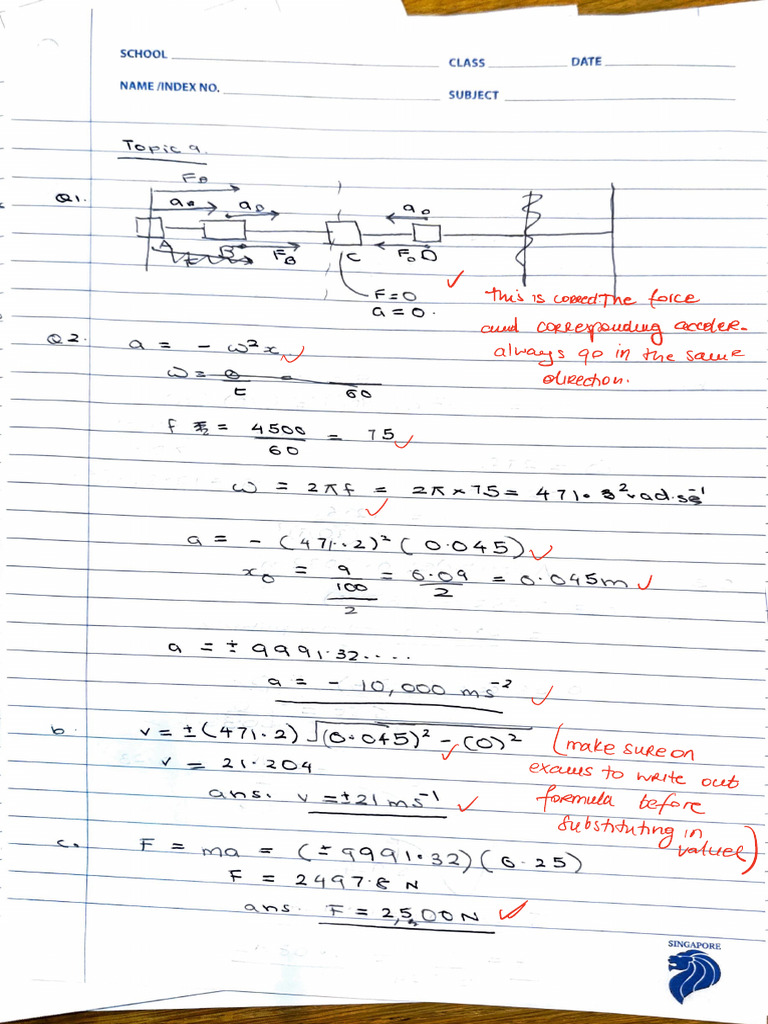 SCHOOL
CLASS
DATE
NAME /INDEX NO.
SUBJECT
Topic 9.
Q1.
A
B
F_B
C
F_D D
a_D
F = 0
a = 0.
This is correct The force
and corresponding acceler.
always go in the same
direction.
Q2.
a = - ω²x
ω = θ
t
60
f = 4500
60
= 75
ω = 2πf = 2π × 75 = 471.
a = - (471.2)² (0.045)
x₀ = 9
100
2
= 0.09
2
= 0.045m
a = ± 9991.32....
a = - 10,000 ms⁻²
b.
v = ± (471.2) √(0.045)² - (0)²
v = 21.204
ans. v = ± 21 ms⁻¹
(make sure on
exams to write out
formula before
substituting in
values)
c.
F = ma = (± 9991.32) (0.25)
F = 2497.8 N
ans. F = 2,500 N
SINGAPORE